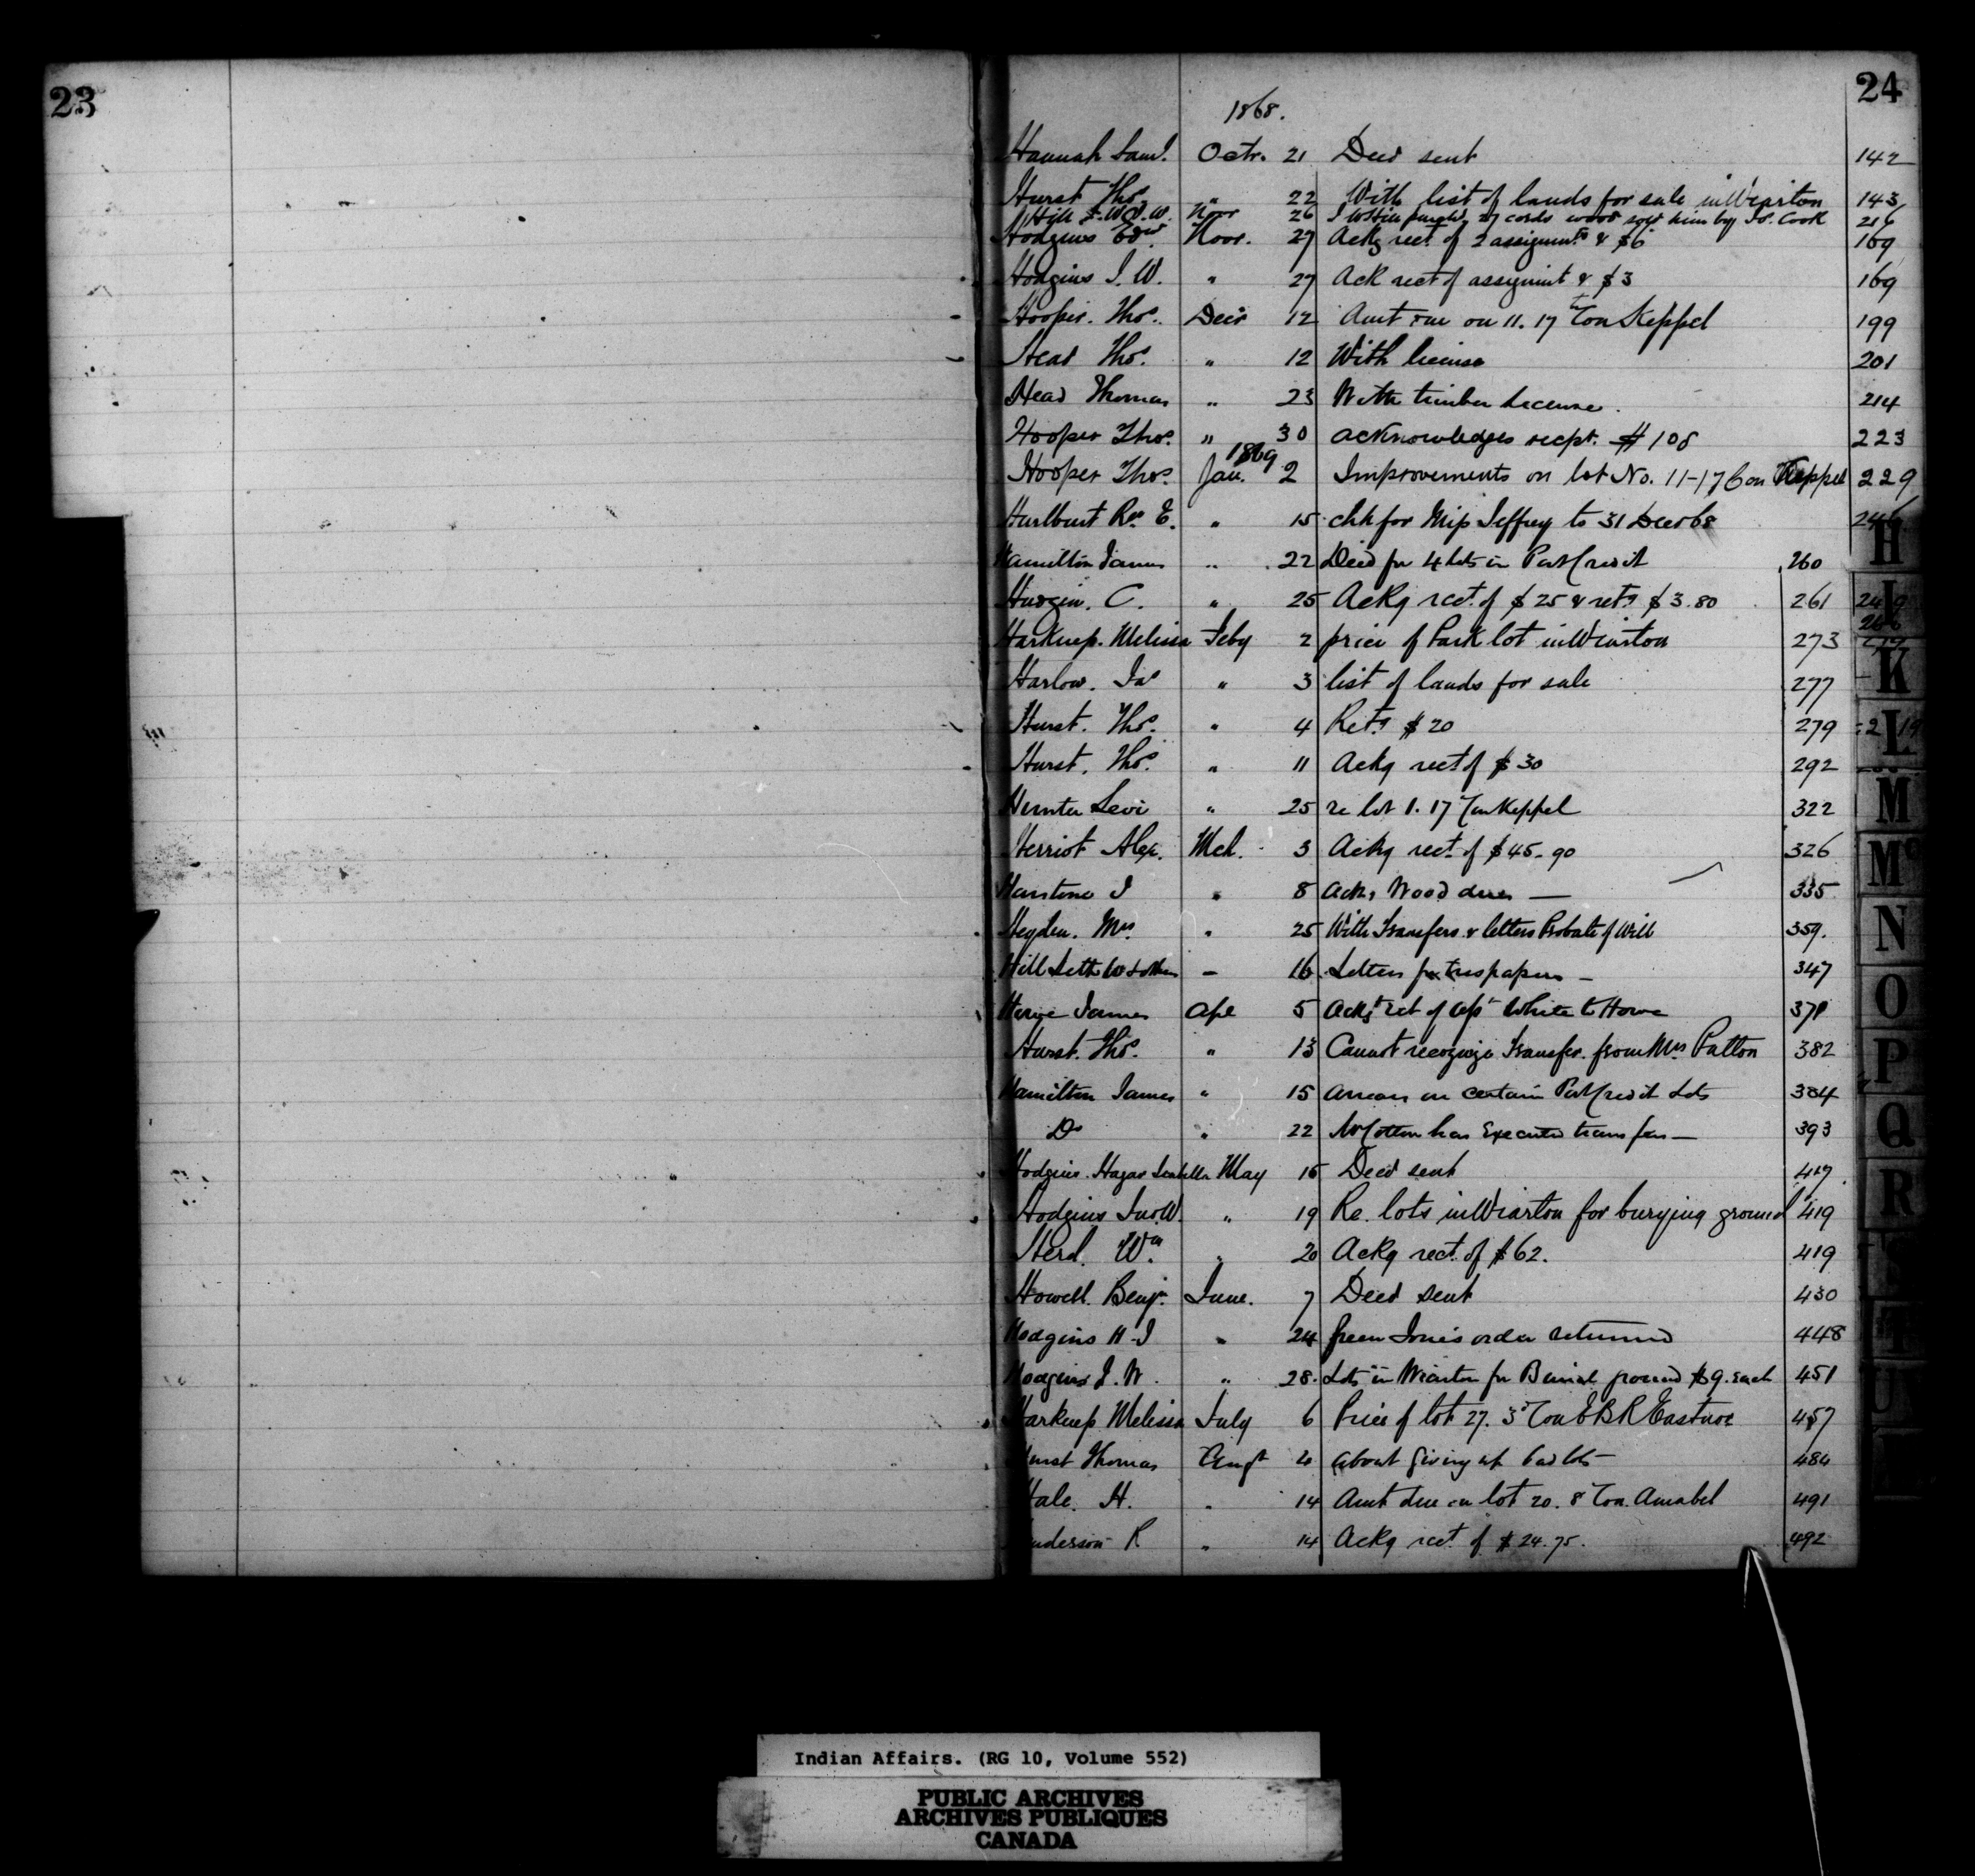 23
24
1868.
Hannah Saml. Octr. 21 Deed sent 142
Hurst Thos. " 22 With list of lands for sale in Wiarton 143
Hill S. W. Novr 26 27 cords wood sold him by Jos. Cook 216
Hodgins Edwd. Novr. 27 Ackg rect. of 2 assignmts & $6 169
Hodgins J. W. " 27 Ack rect of assignmt & $3 169
Hooper. Thos. Decr 12 Amt due on 11. 17th Con Keppel 199
Head Thos. " 12 With license 201
Head Thomas " 23 With timber license. 214
Hooper Thos. " 30 acknowledges recpt. $108 223
1869
Hooper Thos. Jan. 2 Improvements on lot No. 11-17 Con Keppel 229
Hurlburt Rev. E. " 15 chk for Miss Jeffrey to 31 Decr 68 246
Hamilton James " 22 Deed for 4 lots in Port Credit 260
Hudgin. C. " 25 Ackg rect. of $25 & retg $3.80 261
Harkness. Melissa Feby 2 price of Park lot in Wiarton 273
Harlow. Jas " 3 list of lands for sale 277
Hurst. Thos. " 4 Retg $20 279
Hurst. Thos. " 11 Ackg rect of $30 292
Hunter Levi " 25 re lot 1. 17 Con Keppel 322
Herriot Alex. Mch. 3 Ackg rect. of $45.90 326
Hairstone J " 8 Ackg Wood dues — 335
Heyden. Mrs. " 25 With Transfers & letters Probate of Will 359.
Hill Seth W & others — 16 Letters for trespassers — 347
Howe James Apl 5 Ackg rct of Ass. White to Howe 371
Hurst. Thos. " 13 Cannot recognize Transfer from Mrs Patton 382
Hamilton James " 15 arrears on certain Port Credit Lots 384
Do " 22 Mr Cotton has executed transfer — 393
Hodgins. Hagar Isabella May 15 Deed sent 417
Hodgins Jno. W. " 19 Re. lots in Wiarton for burying ground 419
Herd. Wm. " 20 Ackg rect. of $62. 419
Howell. Benjn. June. 7 Deed sent 430
Hodgins H J " 24 order returned 448
Hodgins J. W. " 28. Lots in Wiarton for Burial ground $9. each 451
Harkness Melissa July 6 Price of lot 27. 3d Con E B R Eastnor 457
Hurst Thomas Augt 4 about giving up bad lots — 484
Hale. H. " 14 Amt due on lot 20. 8 Con. Amabel 491
Henderson R " 14 Ackg rect. of $24.75. 492
H
I
K
L
M
Mc
N
O
P
Q
R
T
U
Indian Affairs. (RG 10, Volume 552)
PUBLIC ARCHIVES
ARCHIVES PUBLIQUES
CANADA